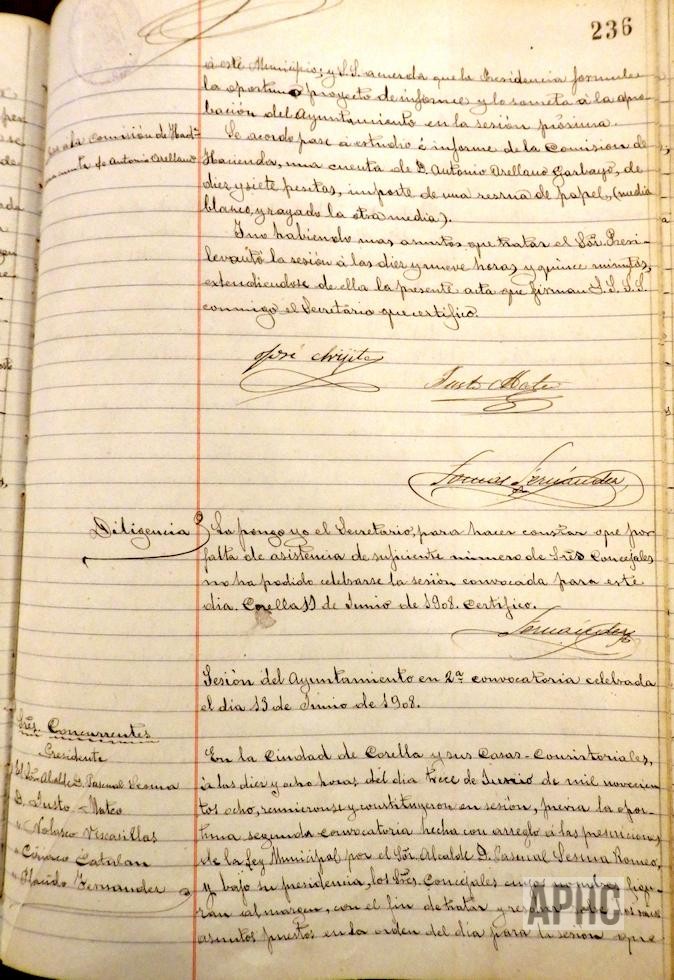 236
á este Municipio; y S.S. acuerda que la Presidencia formule
la oportuno proyecto de informe y lo someta á la apro-
bación del Ayuntamiento en la sesión próxima.
á la comisión de Hacda
cuenta de Antonio Arellano
Se acordo pase á estudio é informe de la Comision de
Hacienda, una cuenta de D. Antonio Arellano Garbayo, de
diez y siete pesetas, importe de una resma de papel, (media
blanco, y rayado la otra media).
Y no habiendo mas asuntos que tratar el Sor. Presi-
levantó la sesión á las diez y nueve horas y quince minutos,
extendiendose de ella la presente acta que firman S.S.S.S.
conmigo el Secretario que certifico.
José
Justo Mateo
Tomas Fernández
Diligencia
La pongo yo el Secretario, para hacer constar que por
falta de asistencia de suficiente número de Sres Concejales
no ha podido celebrarse la sesión convocada para este
dia. Corella 11 de Junio de 1908. Certifico.
Fernández
Sesión del Ayuntamiento en 2ª convocatoria celebrada
el dia 13 de Junio de 1908.
Sres. Concurrentes
Presidente
El Sor Alcalde D. Pascual Sesma
D. Justo Mateo
" Nolasco Viscasillas
" Ciriaco Catalan
" Placido Fernandez
En la Ciudad de Corella y sus Casas-Consistoriales,
á las diez y ocho horas del dia trece de Junio de mil novecien-
tos ocho, reunieronse y constituyeron en sesión, previa la opor-
tuna segunda convocatoria hecha con arreglo á las prescriciones
de la Ley Municipal por el Sor. Alcalde D. Pascual Sesma Romeo,
y bajo su presidencia, los Sres. Concejales cuyos nombres figu-
ran al margen, con el fin de tratar y resolver sobre los
asuntos puestos en la orden del dia para la sesión que
APHC